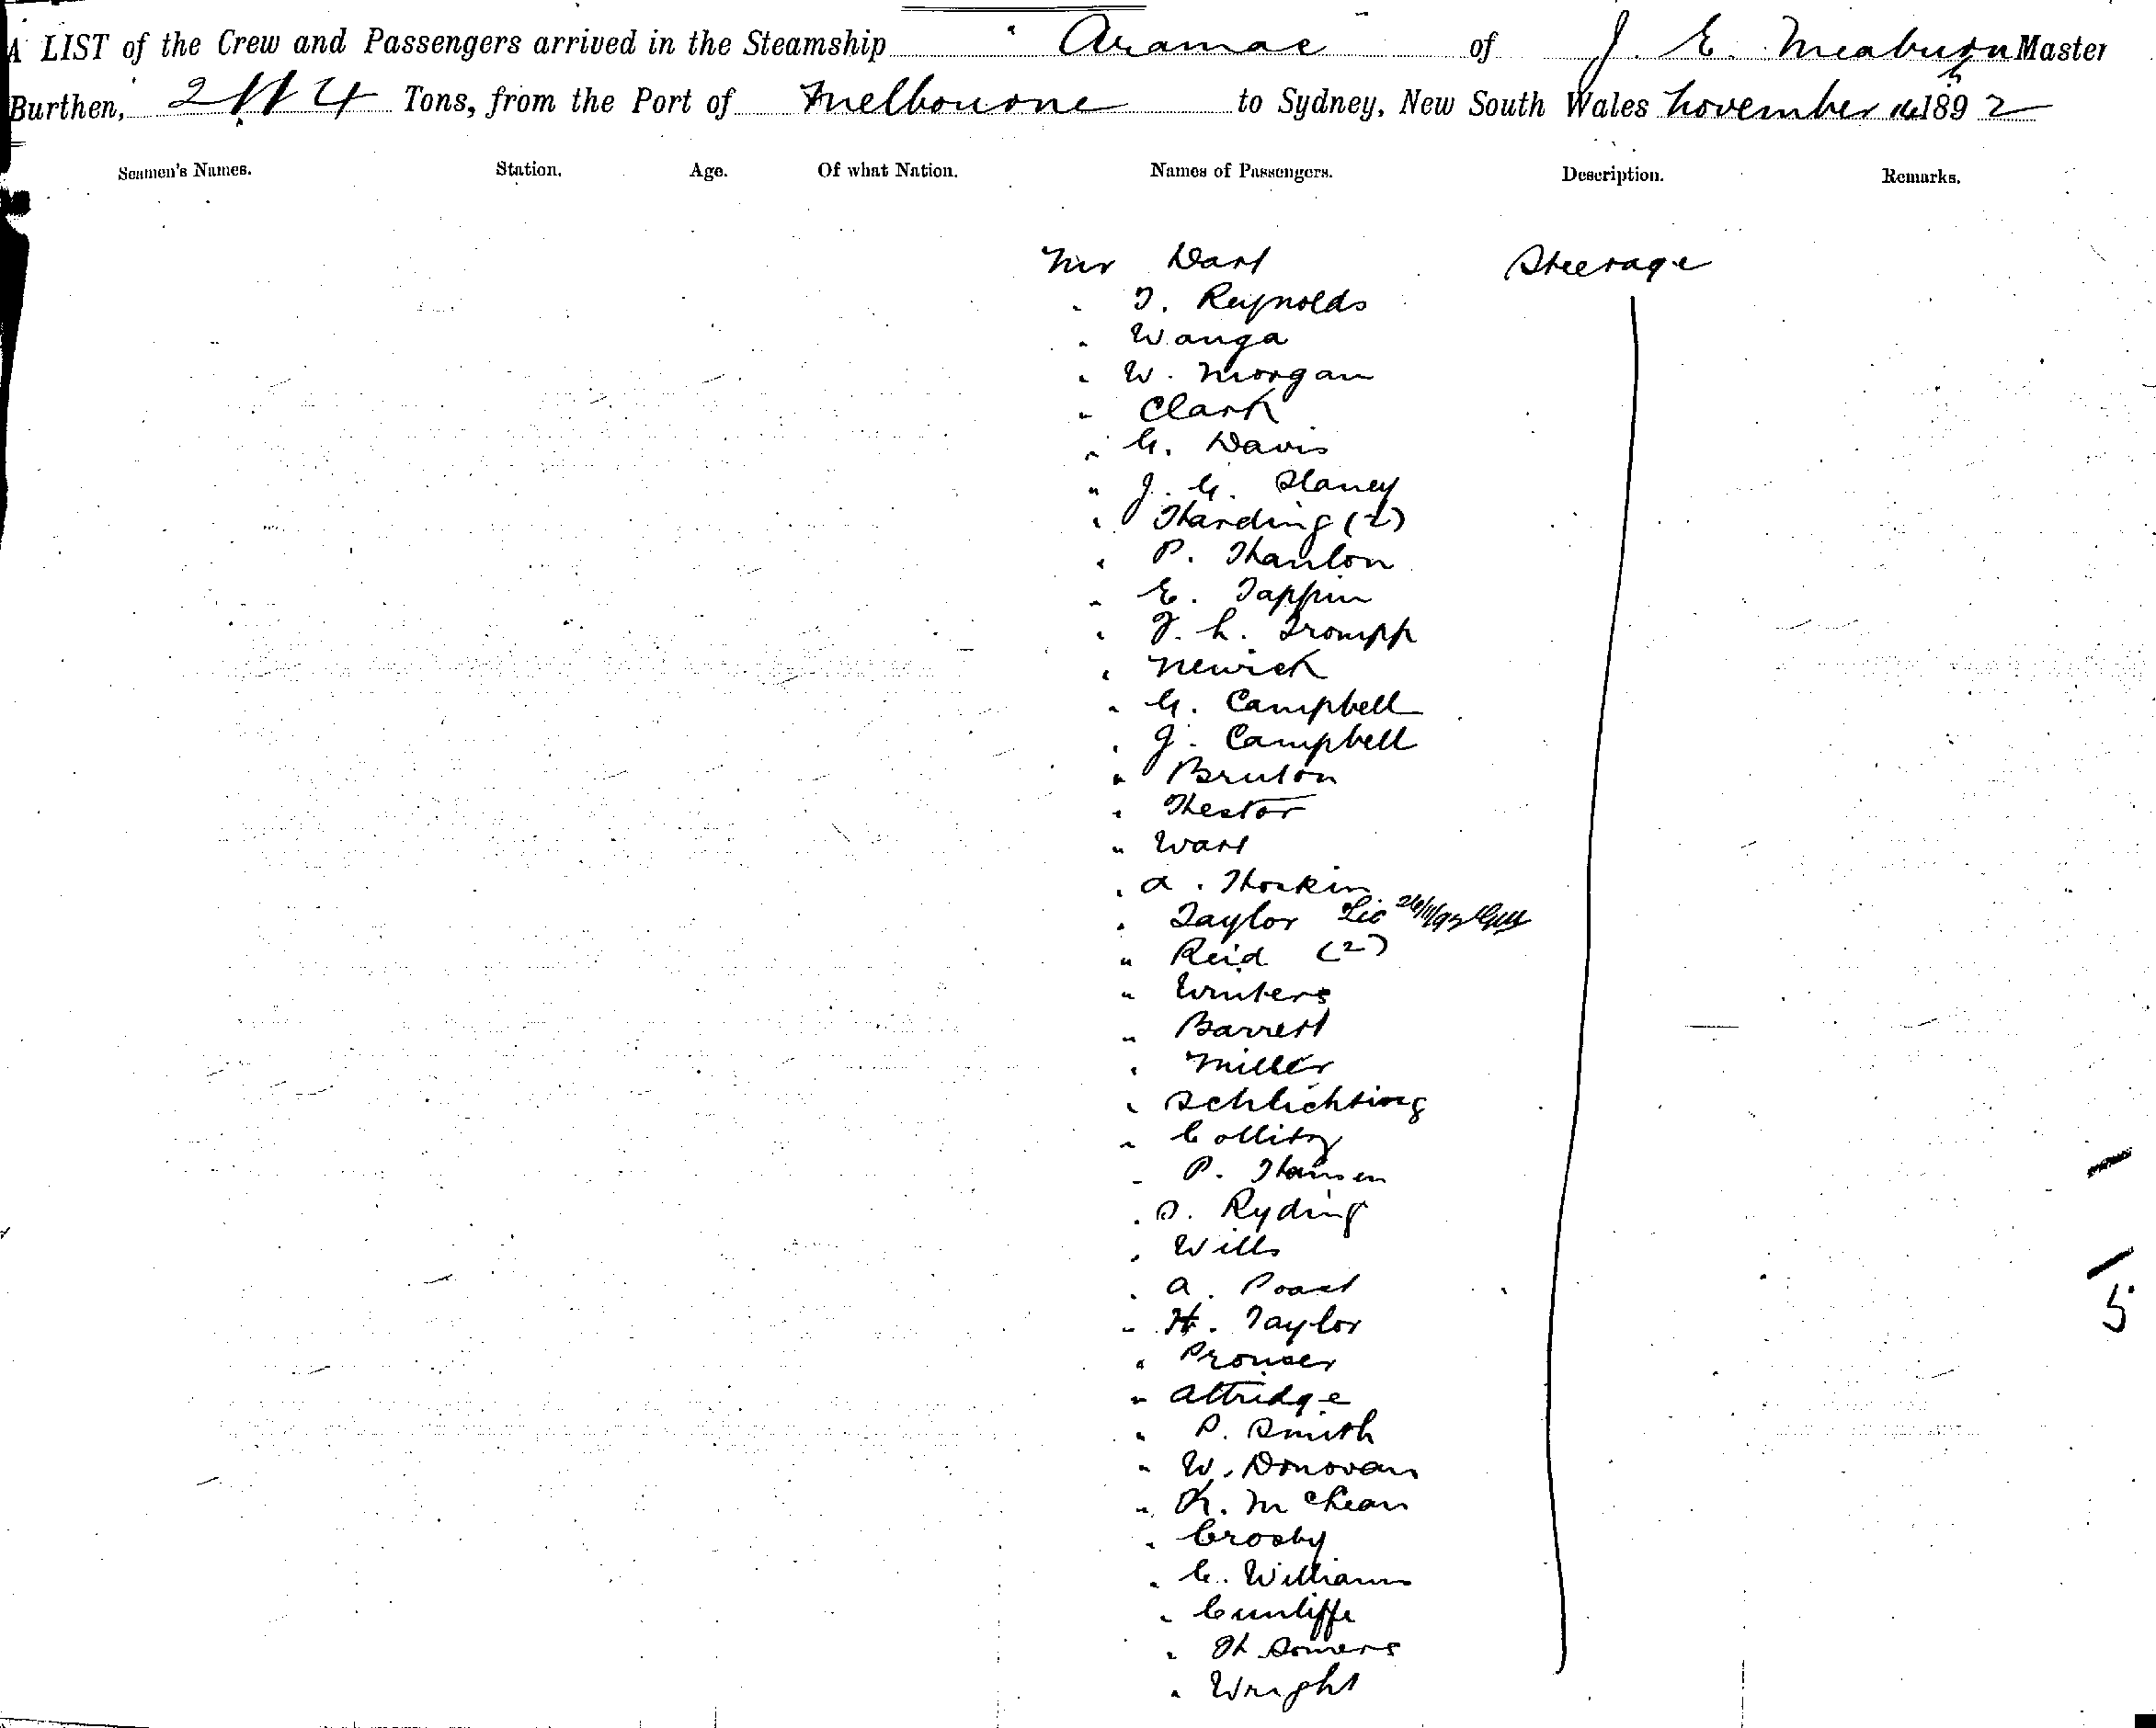 A LIST of the Crew and Passengers arrived in the Steamship "Aramac of J. E. Meaburn Master
Burthen, 2114 Tons, from the Port of Melbourne to Sydney, New South Wales November 16th 1892
Seamen's Names. Station. Age. Of what Nation. Names of Passengers. Description. Remarks.
Mr Dart Steerage
" T. Reynolds
" Wanga
" W. Morgan
" Clark
" G. Davis
" J. G. Slaney
" Harding (2)
" P. Hanlon
" E. Tappin
" J. L. Trompp
" Newick
" G. Campbell
" J. Campbell
" Bruton
" Hestor
" Wart
" A. Hoskin
" Taylor Lic
" Reid (2)
" Winters
" Barrett
" Miller
" Schlichting
" Collitz
" P. Hansen
" S. Ryding
" Wills
" A. Poast
" H. Taylor
" Prouser
" Attridge
" P. Smith
" W. Donovan
" K. McLean
" Crosby
" C. Williams
" Cunliffe
" H Somers
" Wright
5